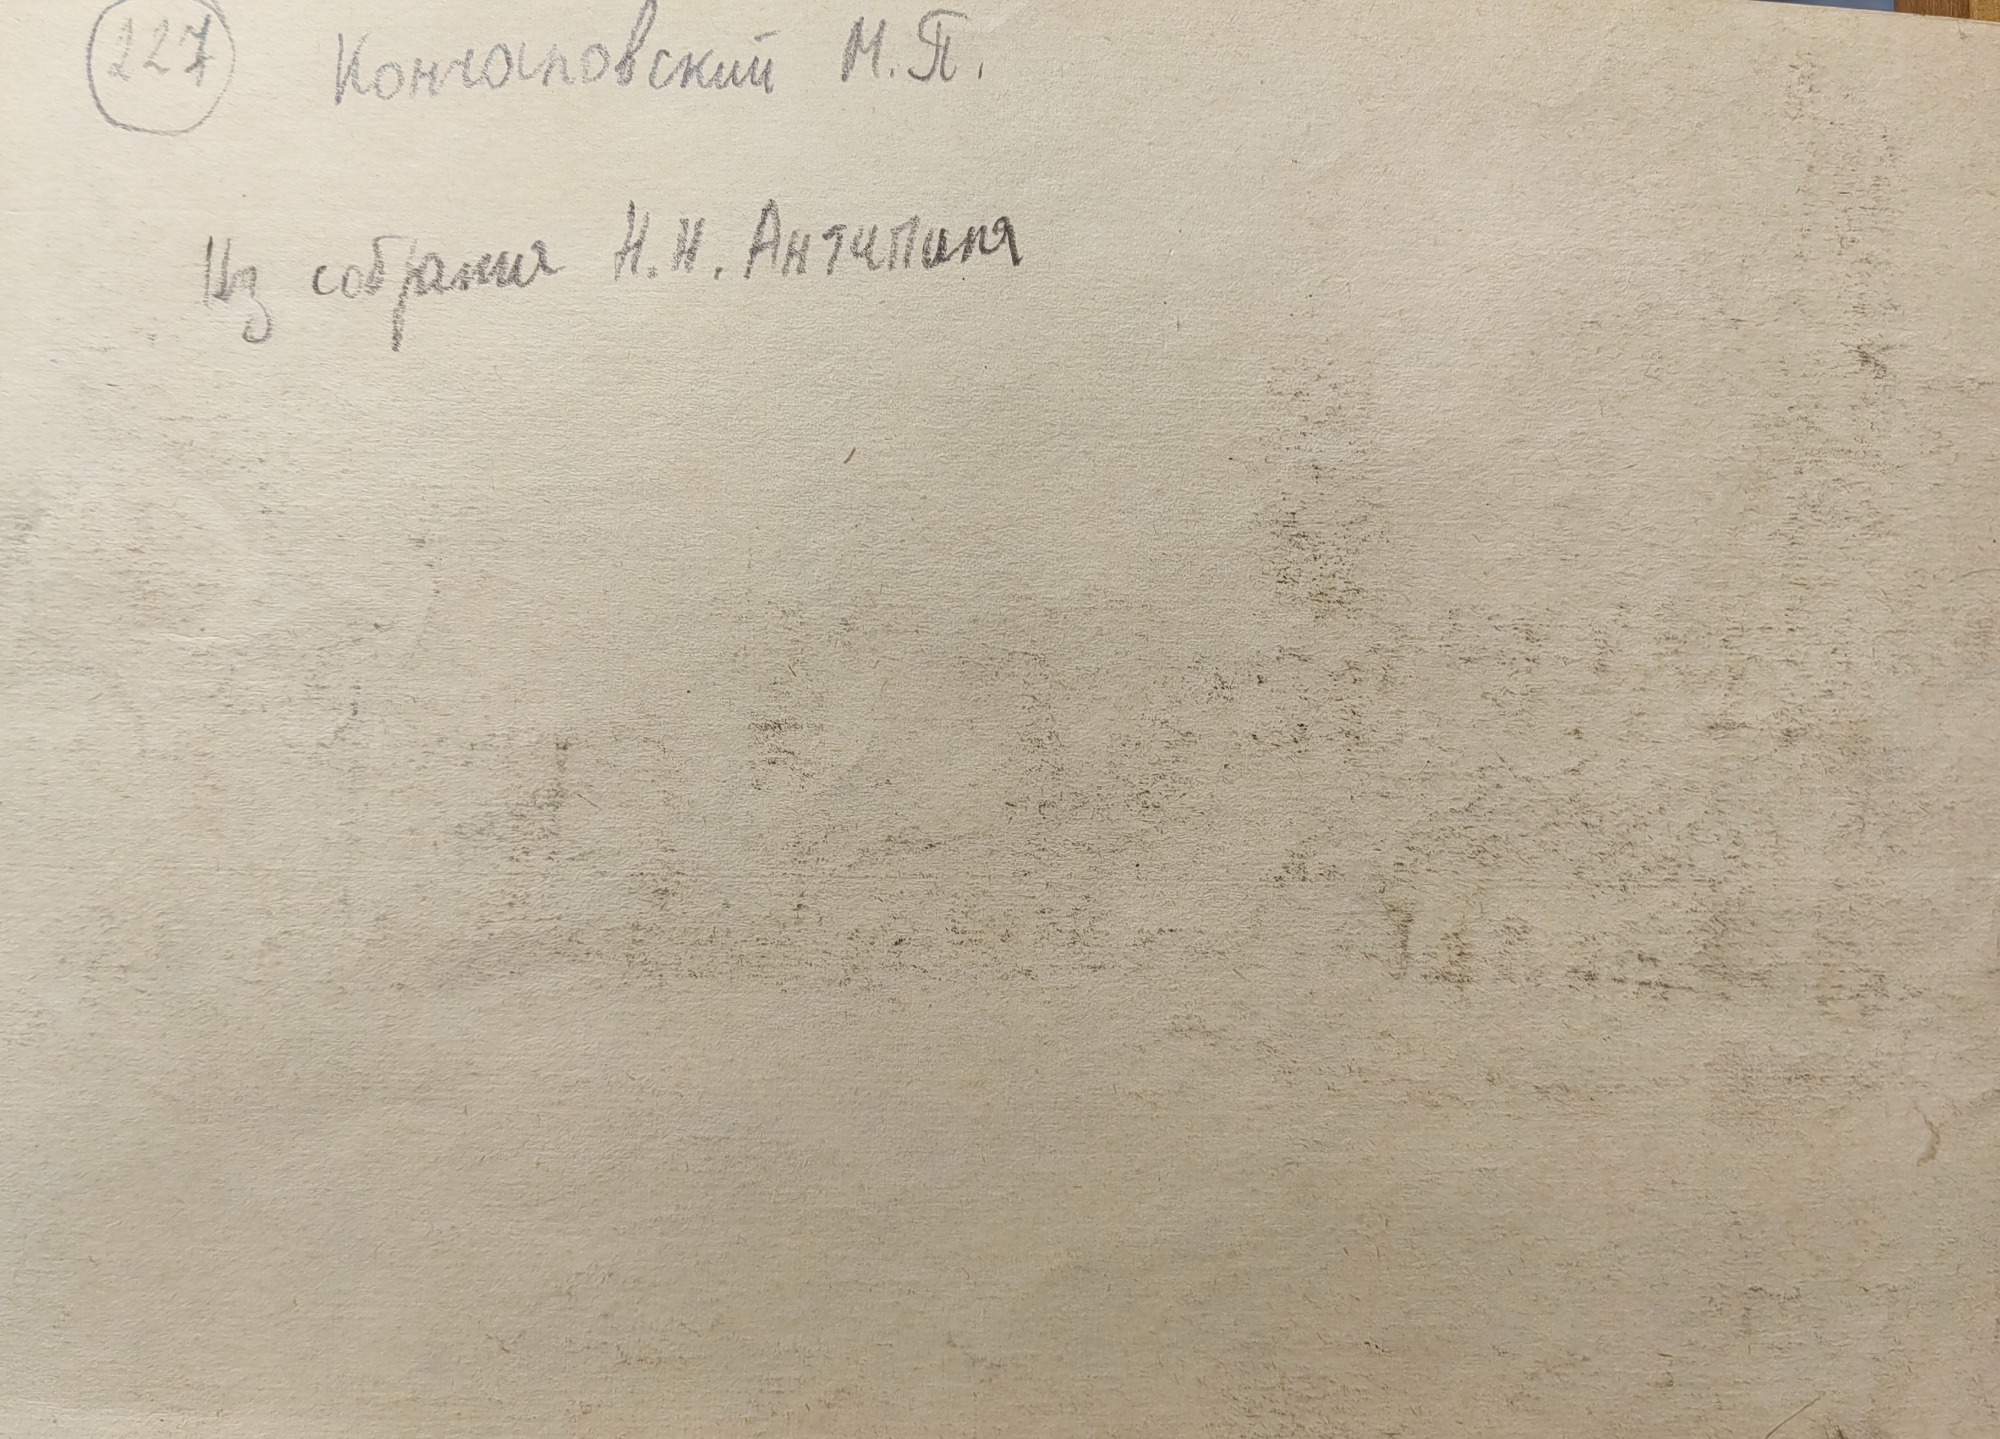 227 Кончаловский М.П.
Из собрания Н.Н. Антипина